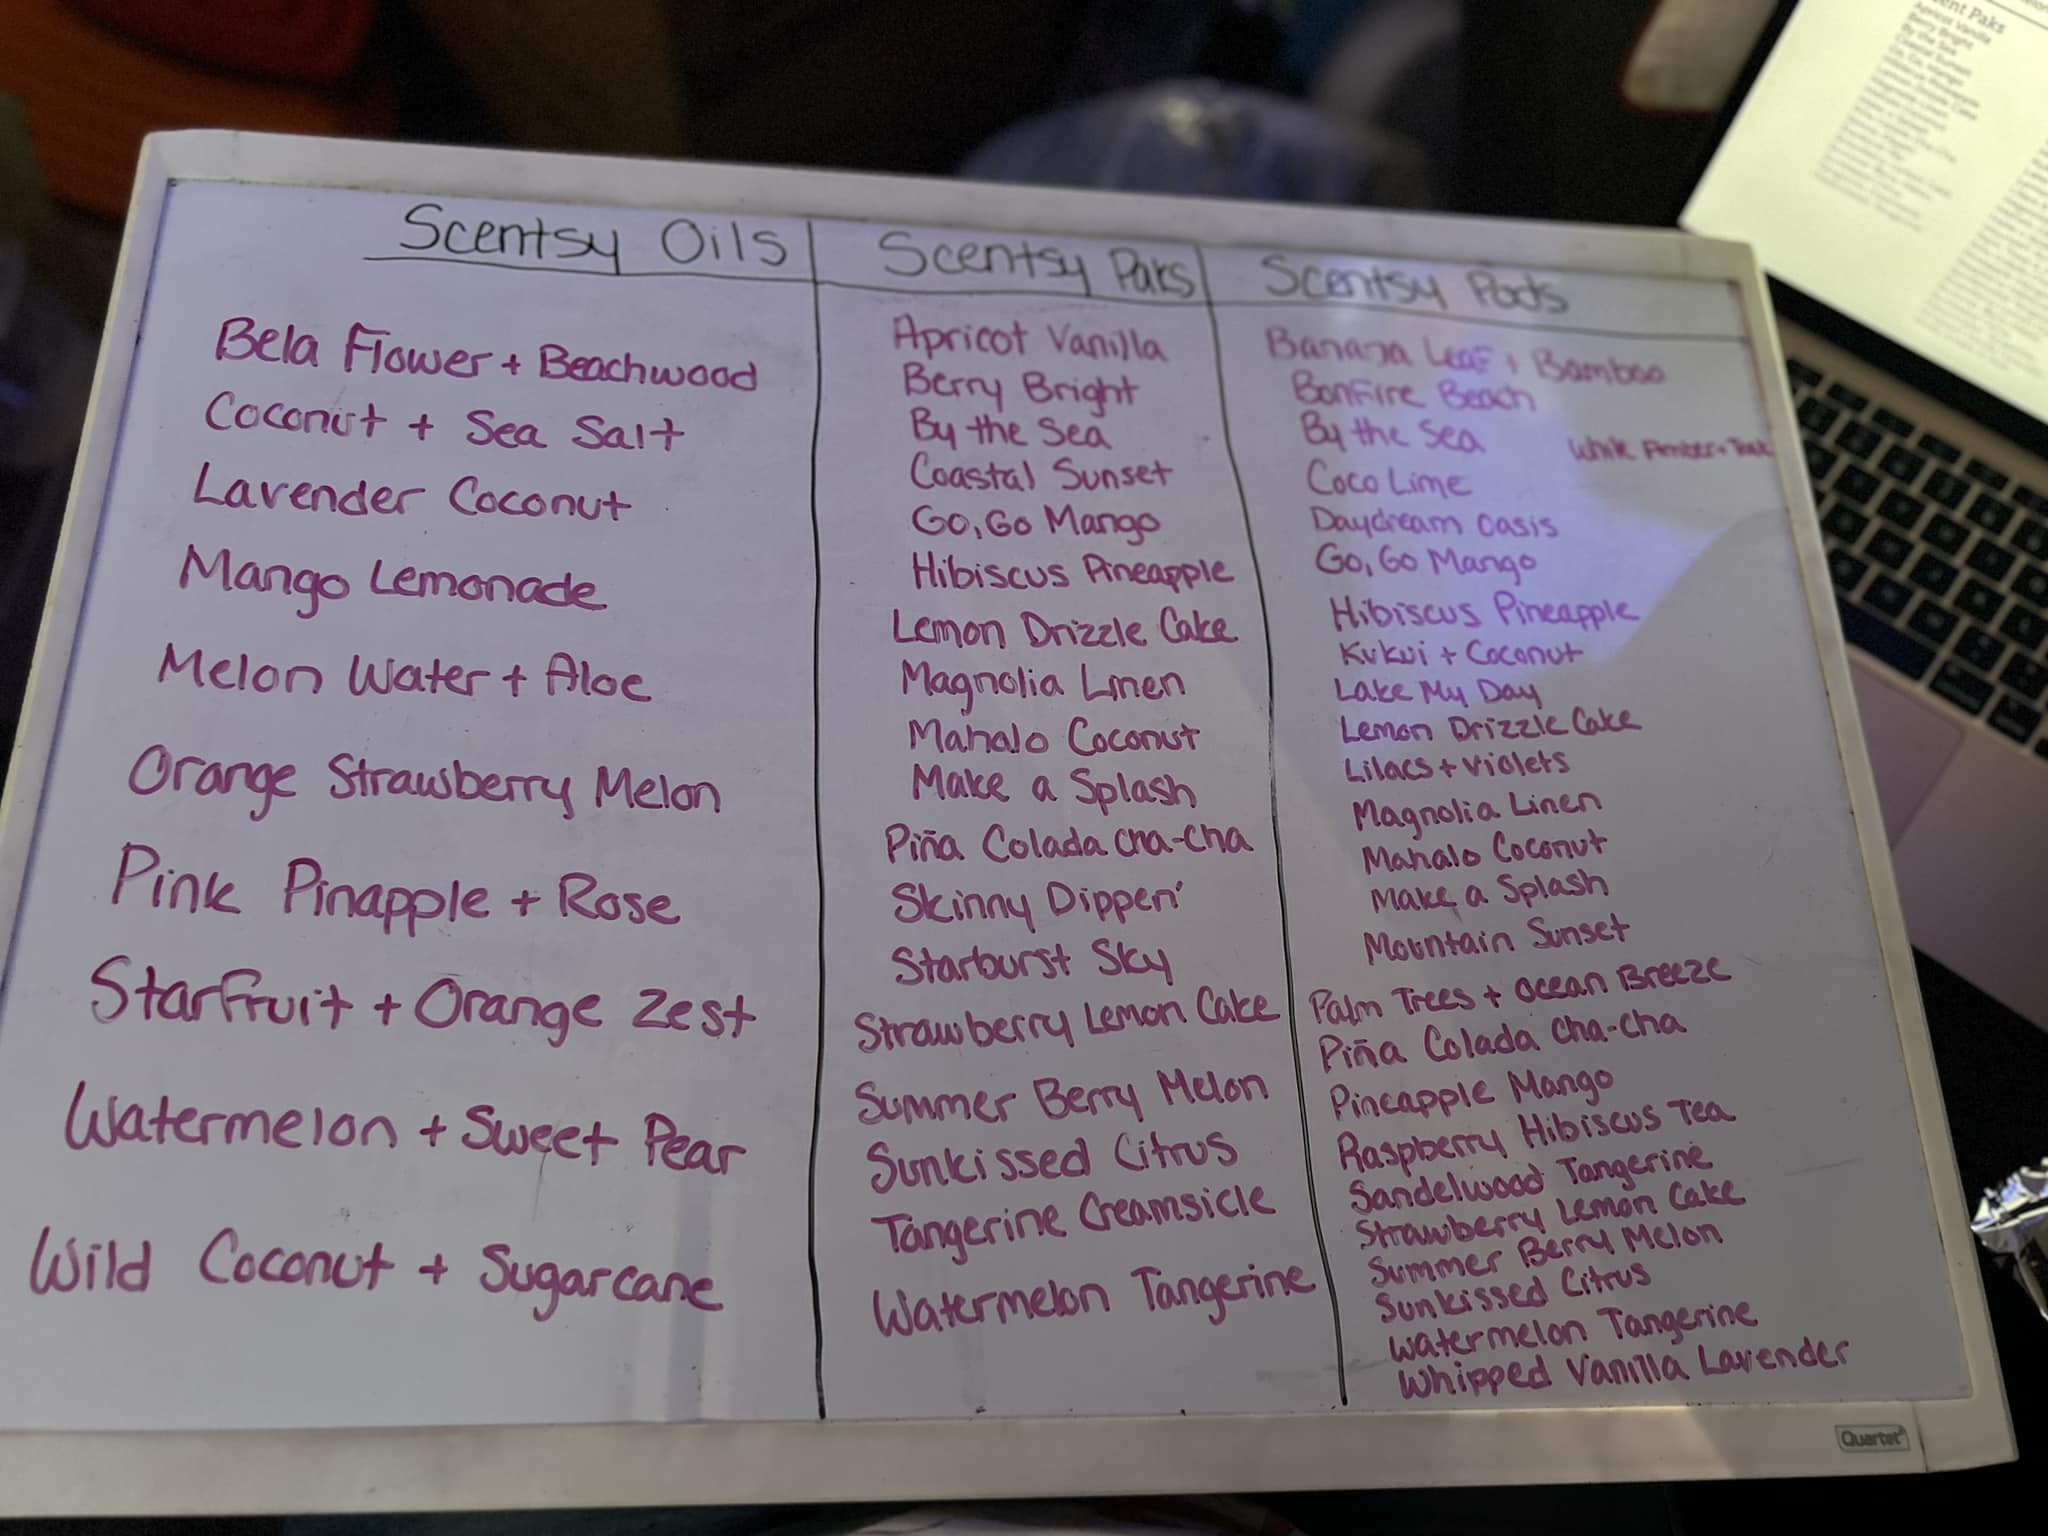 Scentsy Oils
Bela Flower + Beachwood
Coconut + Sea Salt
Lavender Coconut
Mango Lemonade
Melon Water + Aloe
Orange Strawberry Melon
Pink Pinapple + Rose
Starfruit + Orange Zest
Watermelon + Sweet Pear
Wild Coconut + Sugarcane
Scentsy Paks
Apricot Vanilla
Berry Bright
By the Sea
Coastal Sunset
Go, Go Mango
Hibiscus Pineapple
Lemon Drizzle Cake
Magnolia Linen
Mahalo Coconut
Make a Splash
Piña Colada Cha-Cha
Skinny Dippen'
Starburst Sky
Strawberry Lemon Cake
Summer Berry Melon
Sunkissed Citrus
Tangerine Creamsicle
Watermelon Tangerine
Scentsy Pods
Banana Leaf + Bamboo
BonFire Beach
By the Sea
White Amber + Teak
Coco Lime
Daydream Oasis
Go, Go Mango
Hibiscus Pineapple
Kukui + Coconut
Lake My Day
Lemon Drizzle Cake
Lilacs + Violets
Magnolia Linen
Mahalo Coconut
Make a Splash
Mountain Sunset
Palm Trees + Ocean Breeze
Piña Colada Cha-Cha
Pineapple Mango
Raspberry Hibiscus Tea
Sandelwood Tangerine
Strawberry Lemon Cake
Summer Berry Melon
Sunkissed Citrus
Watermelon Tangerine
Whipped Vanilla Lavender
Quartet
Paks
Apricot Vanilla
Berry Bright
By the Sea
Coastal Sunset